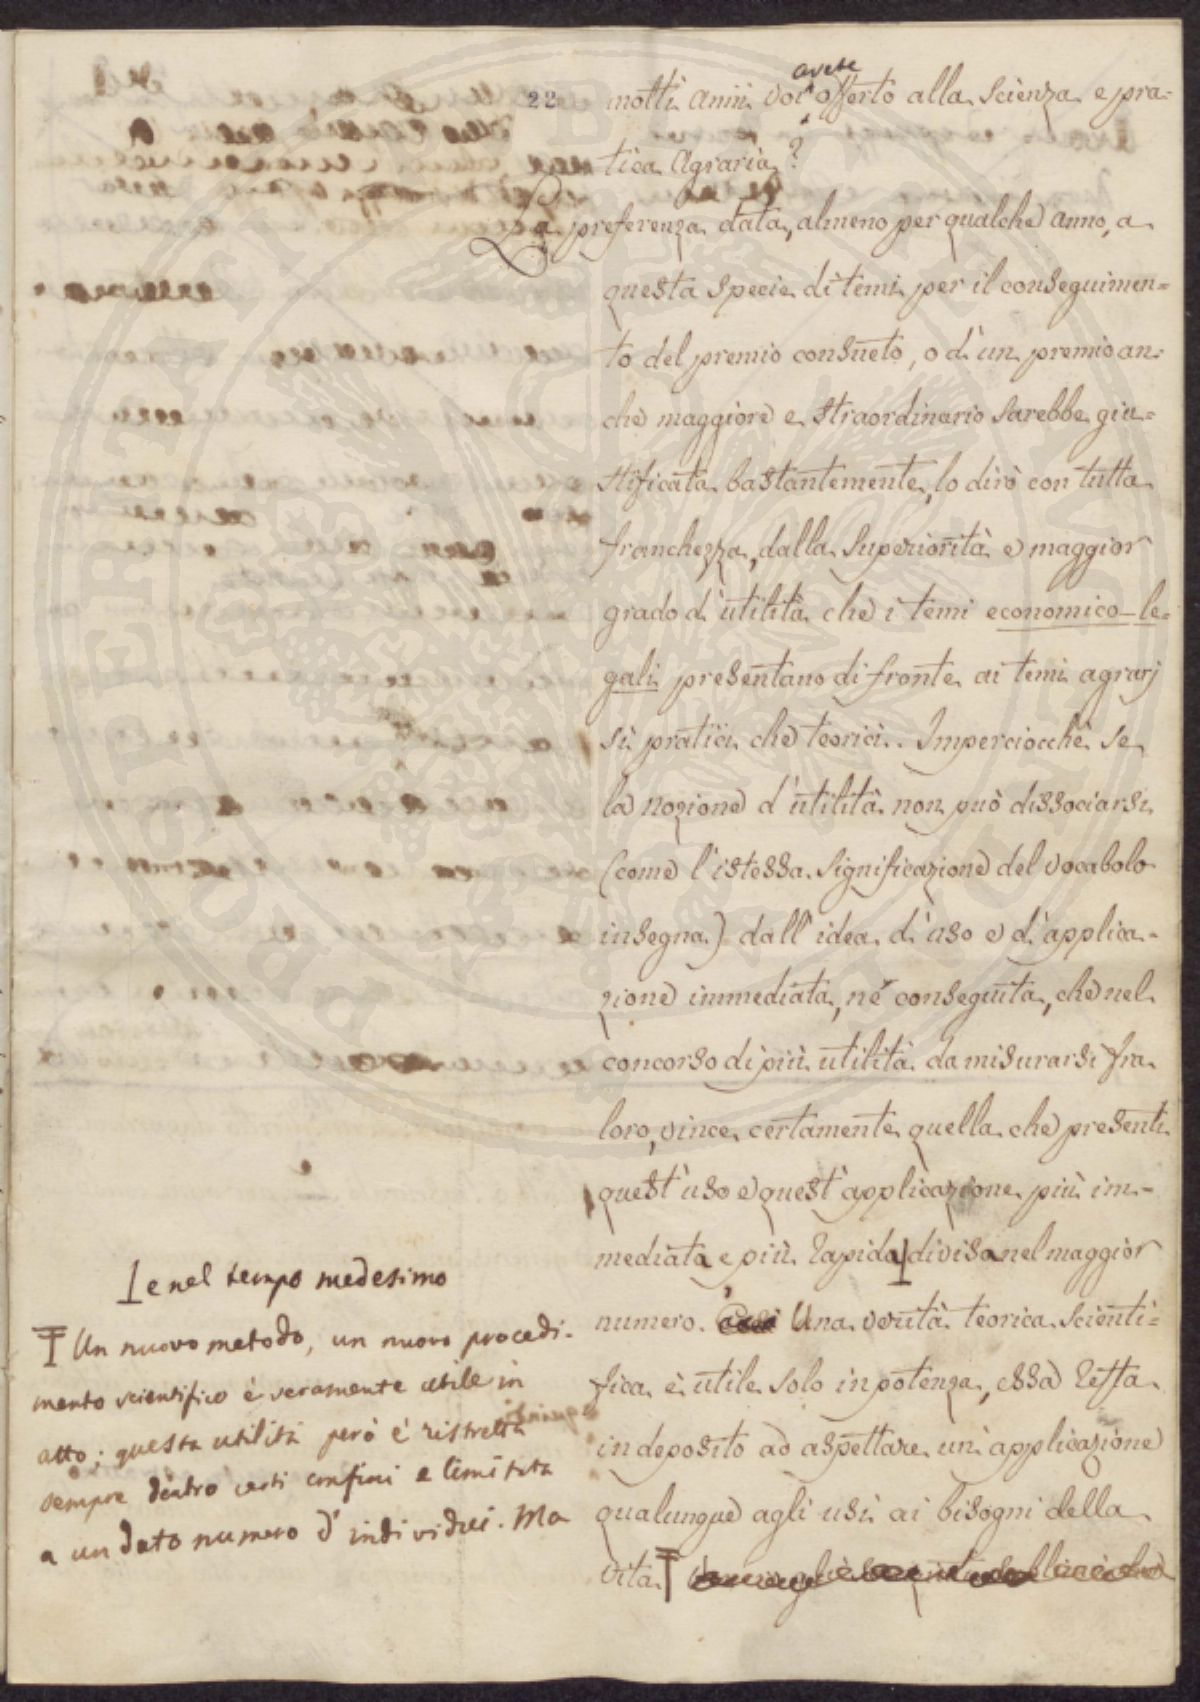 22
avete
molti anni voi offerto alla scienza e pra-
tica Agraria?
La preferenza data, almeno per qualche anno, a
questa specie di temi per il conseguimen=
to del premio consueto, o d'un premio an-
che maggiore e straordinario sarebbe giu-
stificata bastantemente, lo dirò con tutta
franchezza, dalla superiorità e maggior
grado d'utilità che i temi economico-le-
gali presentano di fronte ai temi agrarj
sì pratici che teorici. Imperciocchè se
la nozione d'utilità non può dissociarsi
(come l'istessa significazione del vocabolo
insegna) dall'idea d'uso e d'applica-
zione immediata, ne conseguita, che nel
concorso di più utilità da misurarsi fra
loro, vince certamente quella che presenti
quest'uso e quest'applicazione più im-
mediata e più rapida divisa nel maggior
numero. Una verità teorica scienti=
fica è utile solo in potenza, essa resta
in deposito ad aspettare un'applicazione
qualunque agli usi ai bisogni della
vita.
e nel tempo medesimo
Un nuovo metodo, un nuovo procedi-
mento scientifico è veramente utile in
atto; questa utilità però è ristretta
sempre dentro certi confini e limitata
a un dato numero d'individui. Ma
PROSPERITATI